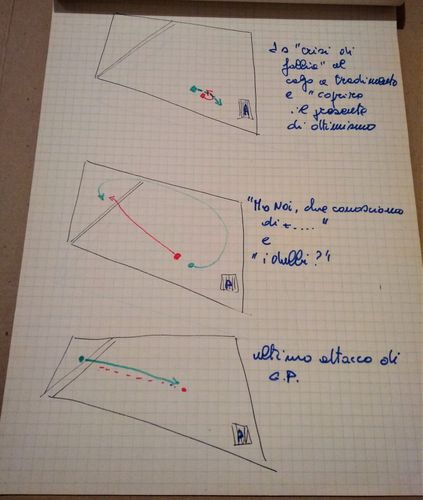 "crisi di
follia" al
a tradimento
e "coprire
il presente
di ottimismo
A
"Ma Noi, due conosciamo
di
e
"i dubbi?"
P.
ultimo attacco di
G.P.
P.